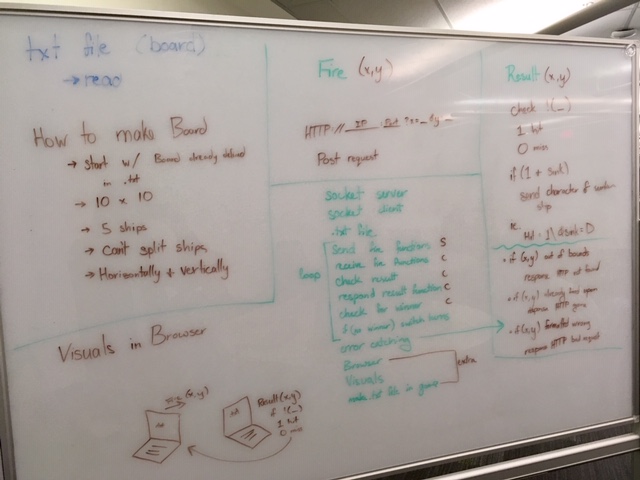 txt file (board)
→ read
How to make Board
→ Start w/ Board already defined
in .txt
→ 10 x 10
→ 5 ships
→ Can't split ships,
→ Horizontally + vertically
Visuals in Browser
(x,y)
Result(x,y)
if !(_)
1 hit
0 miss
Fire (x,y)
HTTP://
Post request
socket server
socket client
.txt file
loop
send fire functions S
receive fire functions C
check result C
respond result function C
check for winner C
if (no winner) switch turns
error catching
Browser
Visuals
extra
make .txt file in game
Result (x,y)
check !(_)
1 hit
0 miss
if (1 + sink)
send character of sunken
ship
ie.
Hit = 1\ &sink=D
• if (x,y) out of bounds
respond HTTP not found
• if (x,y) already fired upon
response HTTP gone
• if (x,y) formatted wrong
respond HTTP bad request